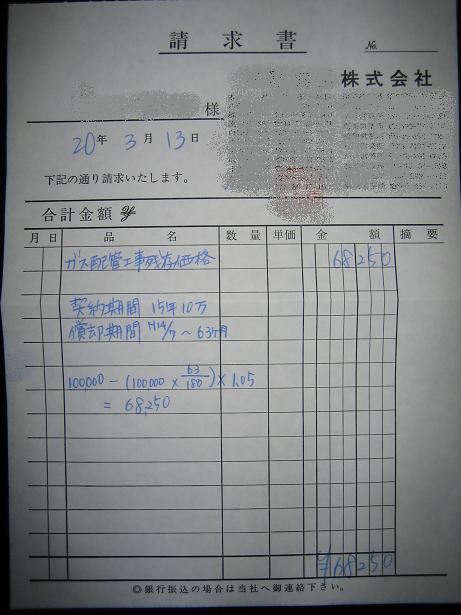 請求書
No.
株式会社
様
20年 3月 13日
下記の通り請求いたします。
合計金額 ¥
月 日 品名 数量 単価 金額 摘要
ガス配管工事残存価格 68250
契約期間 15年10万
償却期間 H14/7〜63ヶ月
100,000 − (100,000 × 63/180) × 1.05
= 68,250
¥68250
◎銀行振込の場合は当社へ御連絡下さい。